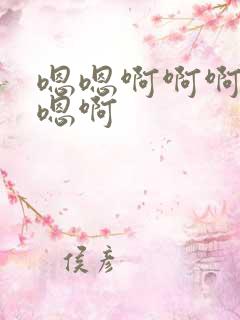 嗯嗯啊啊啊
嗯啊
侯彦